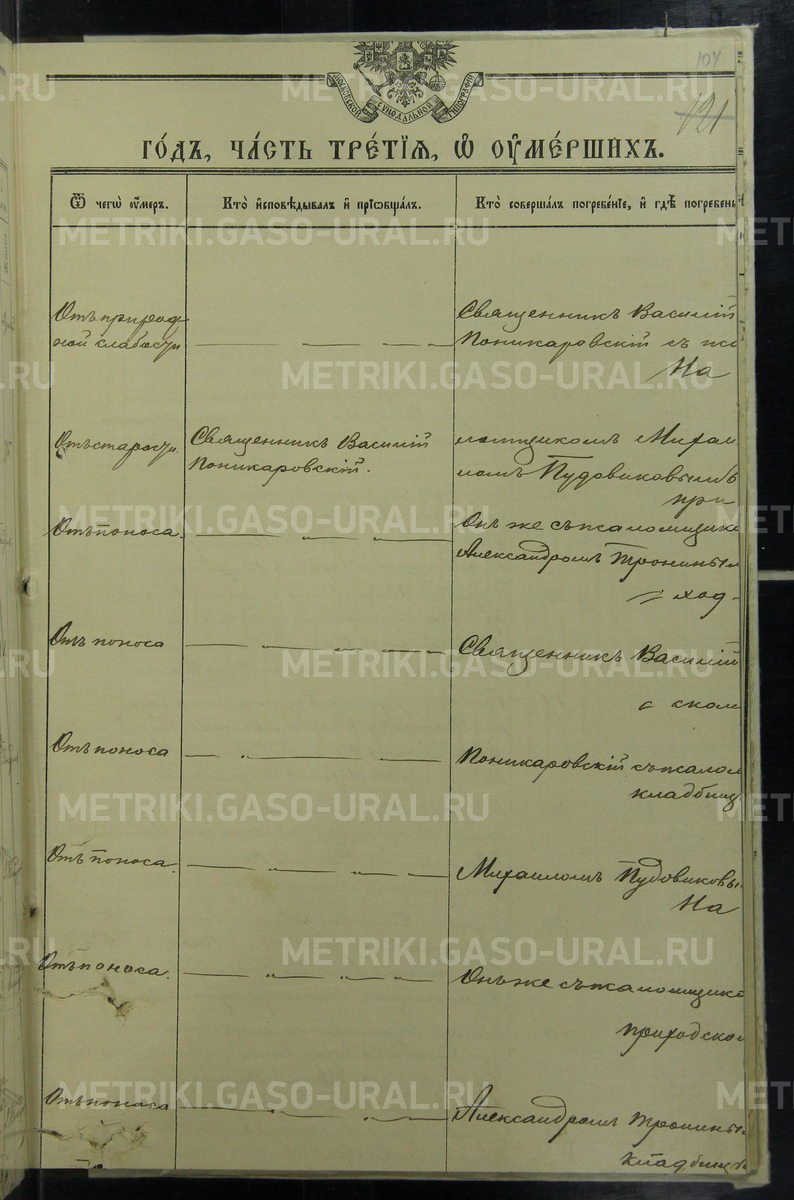 104
121
МОСКОВСКОЙ СѴНОДАЛЬНОЙ ТИПОГРАФІИ
ГО́ДЪ, ЧА́СТЬ ТРЕ́ТІѦ, Ѡ҆ ОУ҆МЕ́РШИХЪ.
Ѿ чегѡ̀ оу҆́меръ.
Кто̀ и҆сповѣ́дывалъ и҆ прїѡбща́лъ.
Кто̀ соверша́лъ погребе́нїе, и҆ гдѣ̀ погребены
Отъ природ
ной слабости
Священникъ Василій
Поникаровскій съ пса
На
Отъ старости
Священникъ Василій
Поникаровскій.
ломщикомъ Михаи
ломъ Пудовиковымъ
при
Отъ поноса.
Онъ же съ псаломщико
Александромъ Трониным
ход-
Отъ поноса
Священникъ Василій
ском
Отъ поноса
Поникаровскій съ псалом
кладбищ
Отъ поноса.
Михаиломъ Пудовиковы
На
Отъ поноса.
Онъ же съ псаломщико
приходском
Отъ поноса
Александромъ Трониным
кладбищ
METRIKI.GASO-URAL.RU